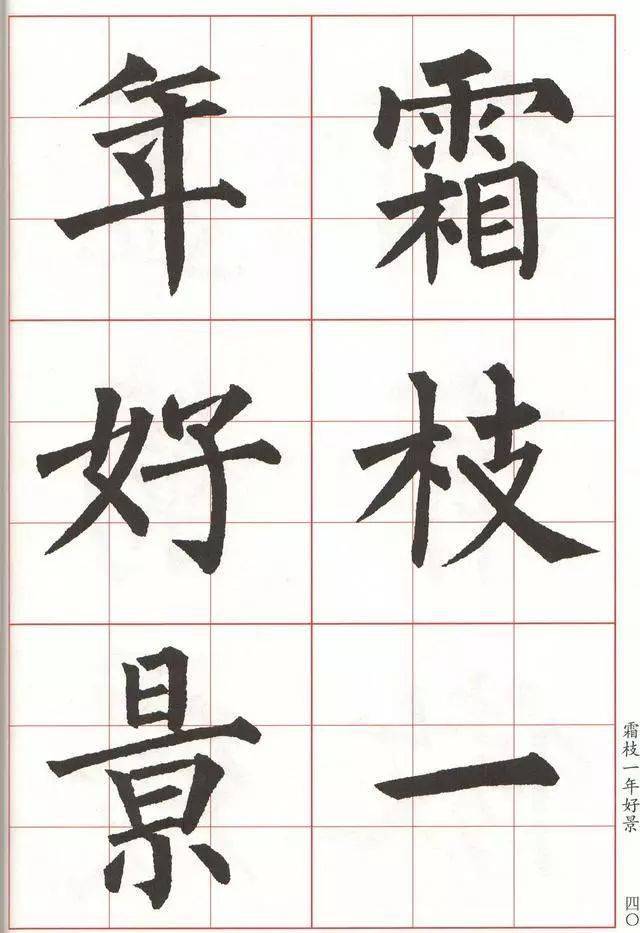 霜枝一
年好景
霜枝一年好景
四〇